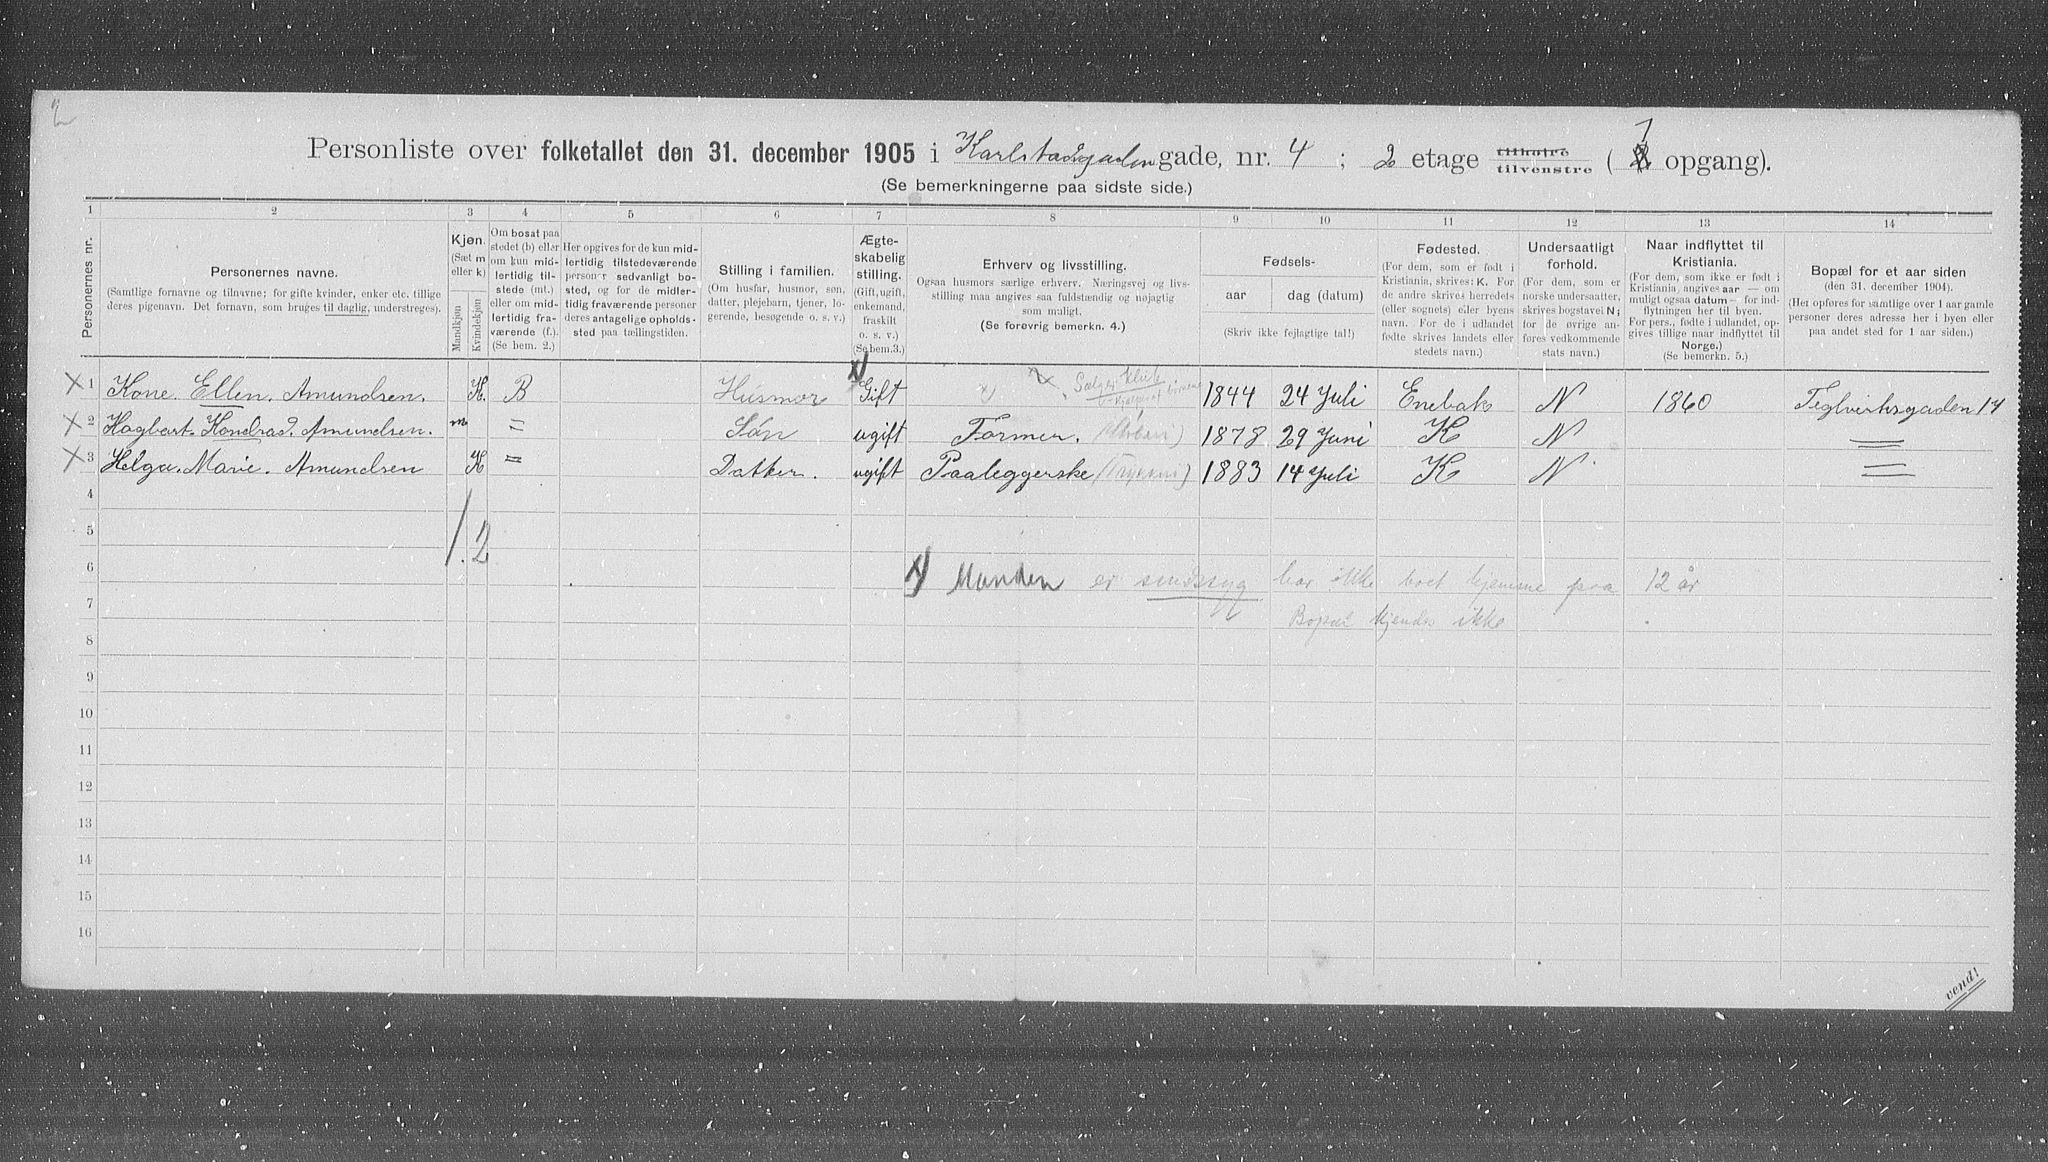 2
Personliste over folketallet den 31. december 1905 i Karlstadgaden gade, nr. 4 ; 2 etage tilhøire tilvenstre ( 1 opgang).
(Se bemerkningerne paa sidste side.)
1 2 3 4 5 6 7 8 9 10 11 12 13 14
Personernes nr.
Personernes navne.
(Samtlige fornavne og tilnavne; for gifte kvinder, enker etc. tillige
deres pigenavn. Det fornavn, som bruges til daglig, understreges).
Kjøn.
(Sæt m
eller k)
Mandkjøn
Kvindekjøn
Om bosat paa
stedet (b) eller
om kun mid-
lertidig til-
stede (mt.)
eller om mid-
lertidig fra-
værende (f.).
(Se bem. 2.)
Her opgives for de kun mid-
lertidig tilstedeværende
personer sedvanligt bo-
sted, og for de midler-
tidig fraværende personer
deres antagelige opholds-
sted paa tællingstiden.
Stilling i familien.
(Om husfar, husmor, søn,
datter, plejebarn, tjener, lo-
gerende, besøgende o. s. v.)
Ægte-
skabelig
stilling.
(Gift, ugift,
enkemand,
fraskilt
o. s. v.)
(Se bem.3.)
Erhverv og livsstilling.
Ogsaa husmors særlige erhverv. Næringsvej og livs-
stilling maa angives saa fuldstændig og nøjagtig
som muligt.
(Se forøvrig bemerkn. 4.)
Fødsels-
aar
dag (datum)
(Skriv ikke fejlagtige tal!)
Fødested.
(For dem, som er født i
Kristiania, skrives: K. For
de andre skrives herredets
(eller sognets) eller byens
navn. For de i udlandet
fødte skrives landets eller
stedets navn.)
Undersaatligt
forhold.
(For dem, som er
norske undersaatter,
skrives bogstavet N;
for de øvrige an-
føres vedkommende
stats navn.)
Naar indflyttet til
Kristiania.
(For dem, som ikke er født i
Kristiania, angives aar — om
muligt ogsaa datum — for ind-
flytningen her til byen.
For pers., fødte i udlandet, op-
gives tillige naar indflyttet til
Norge.)
(Se bemerkn. 5.)
Bopæl for et aar siden
(den 31. december 1904).
(Her opføres for samtlige over 1 aar gamle
personer deres adresse her i byen eller
paa andet sted for 1 aar siden.)
x 1 Kone. Ellen. Amundsen. K. B Husmor x) Gift x) 1844 24 Juli Enebak N 1860 Teglverksgaden 14
x 2 Hagbart. Kondrad. Amundsen. m = Søn ugift Former. 1878 29 Juni K N =
x 3 Helga. Marie. Amundsen K = Datter. ugift Paaleggerske 1883 14 Juli K N =
4
5 1. 2
6 x) Manden er sindssyg har ikke boet hjemme paa 12 år
7 Bopæl kjendes ikke
8
9
10
11
12
13
14
15
16
vend!